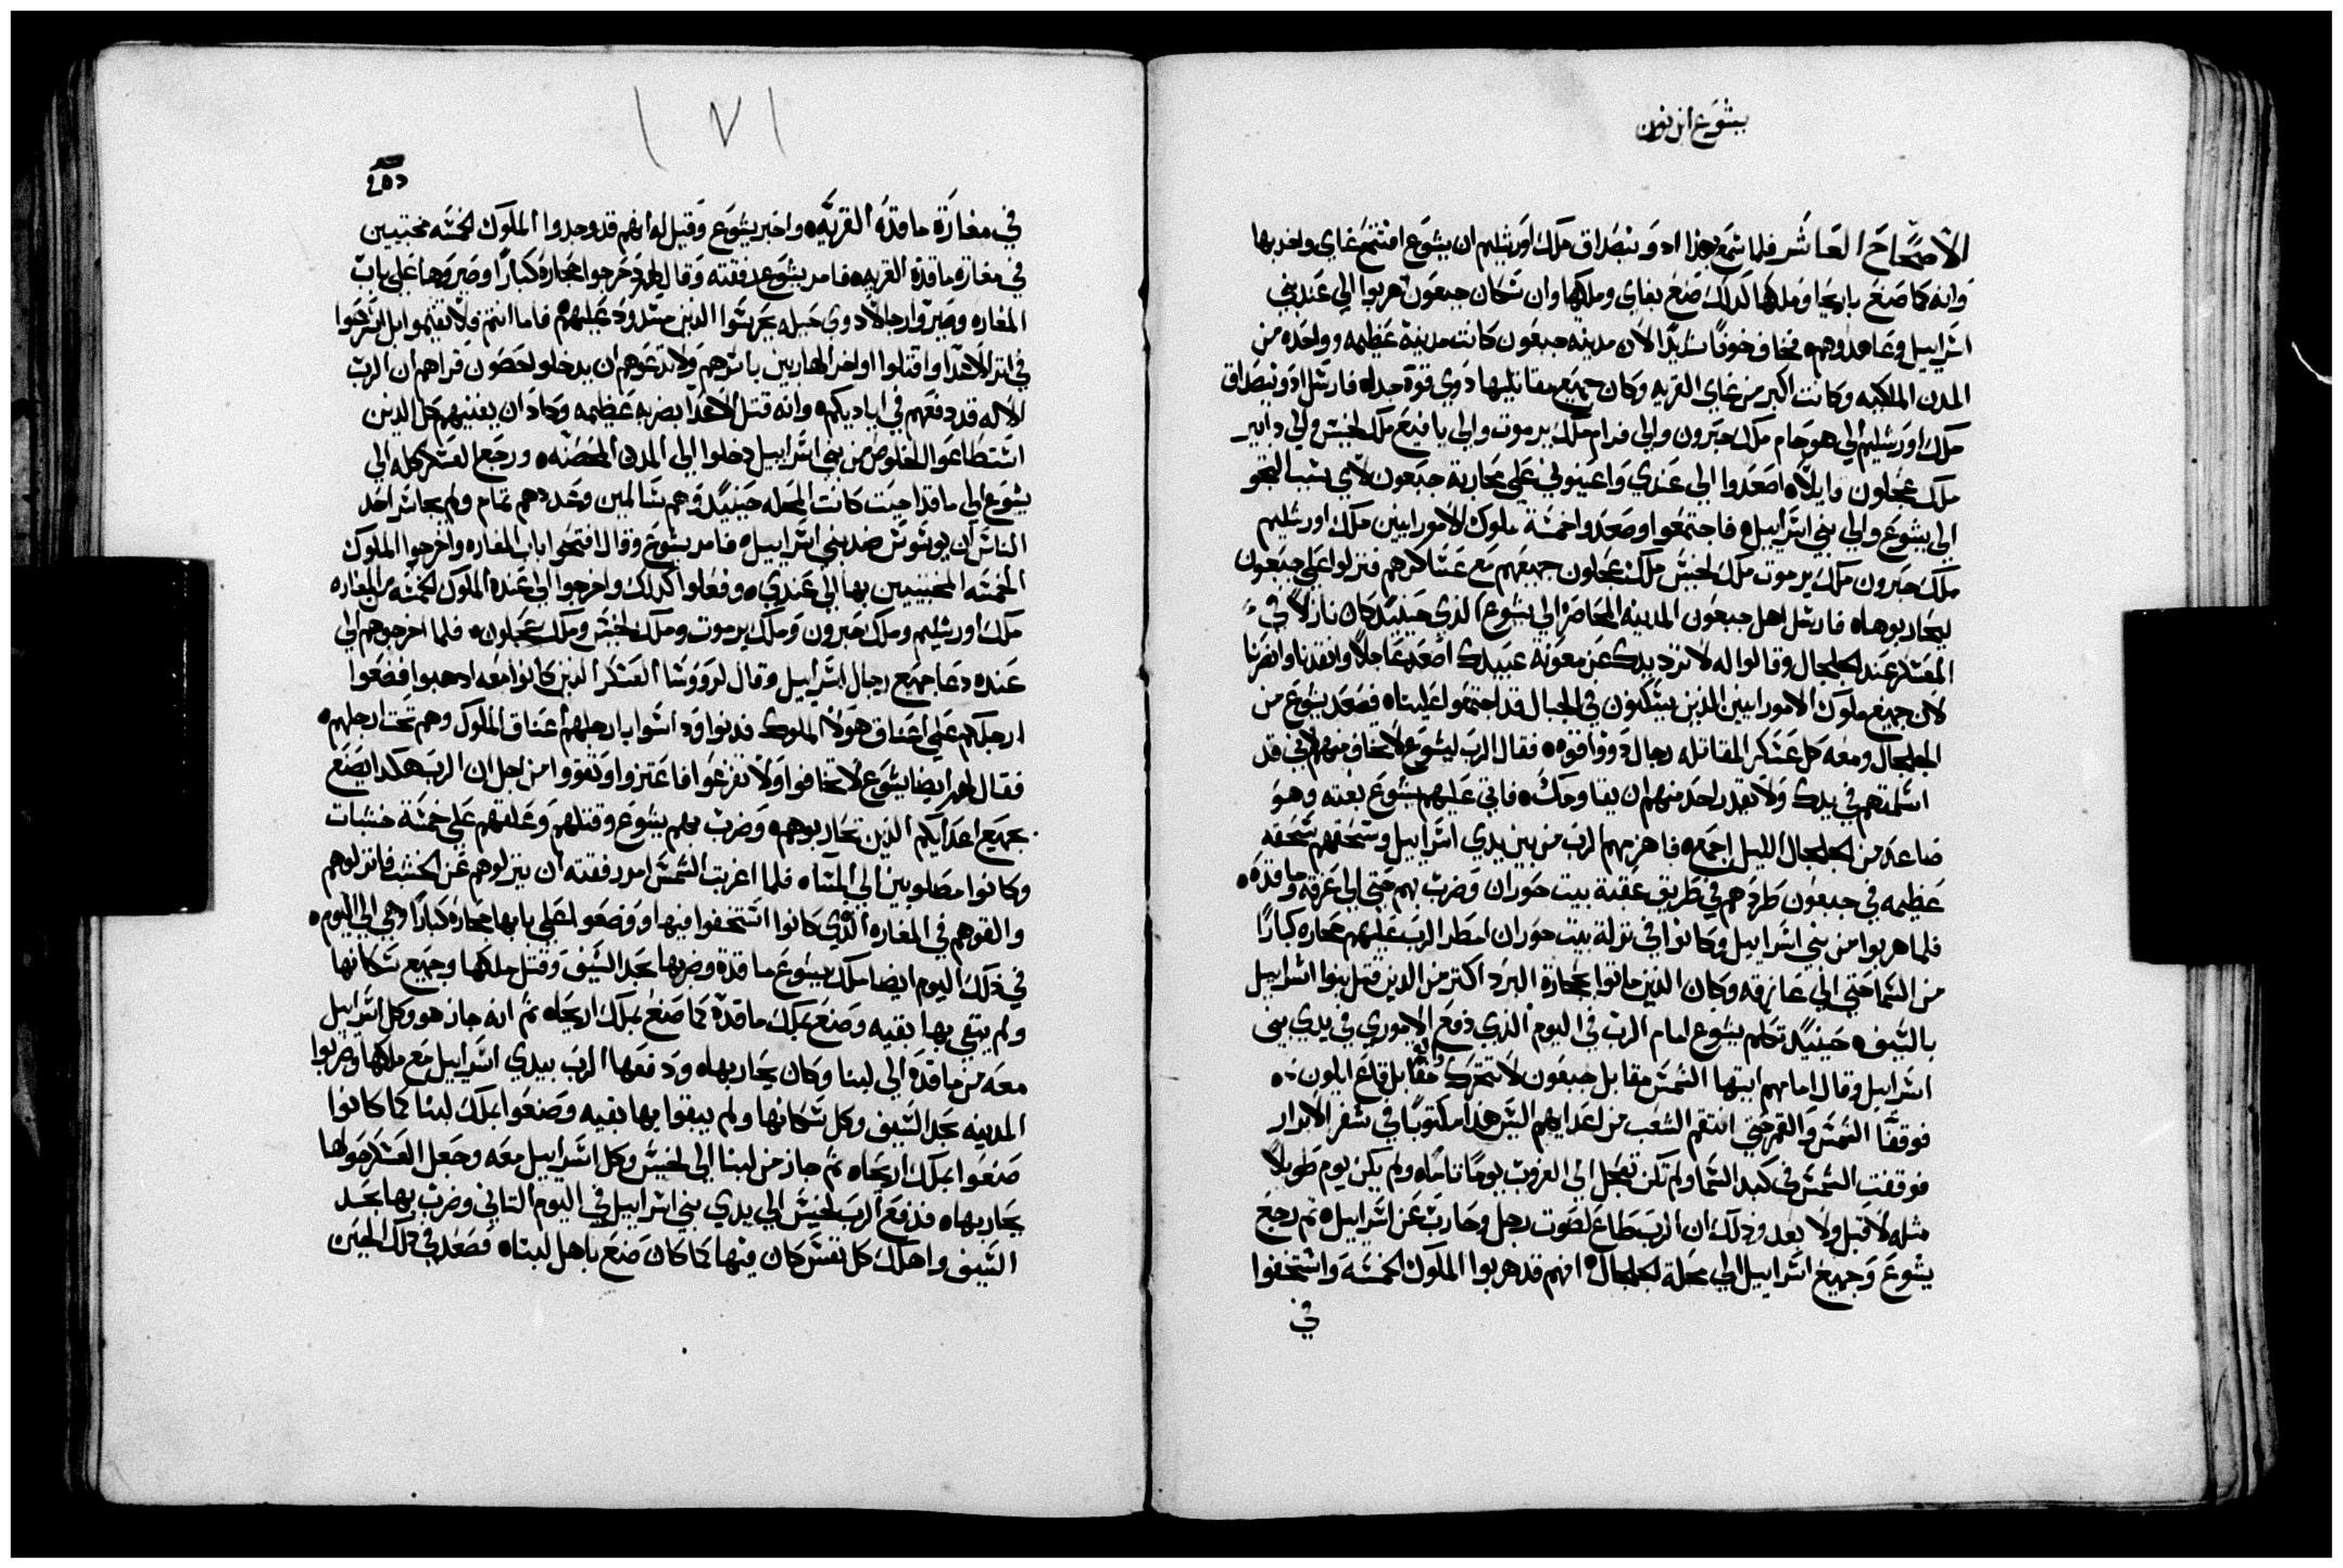 يشوع ابن نون
الاصحاح العاشر فلما سمع بهذا ادونيصداق ملك اورشليم ان يشوع افتتح غاي واخربها
وانه كما صنع باريحا وملكها كذلك صنع بغاي وملكها وان سكان جبعون هربوا الي عند بني
اسراييل وعاهدوهم فخاف خوفًا شديدًا لان مدينه جبعون كانت مدينة عظيمه وواحده من
المدن الملكيه وكانت اكبر من غاي القريه وكان جميع مقاتليها ذوي قوة جداه فارسل ادونيصداق
ملك اورشليم الي هوحام ملك حبرون والي فرام ملك يرموت والي يافيع ملك لخيش والي دابير
ملك عجلون قايلاه اصعدوا الي عندي واعينوني علي محاربة جبعون لاي سبب التجو
الي يشوع والي بني اسراييله فاجتمعوا وصعدوا خمسة ملوك الامورايين ملك اورشليم
ملك حبرون ملك يرموت ملك لخيش ملك عجلون جميعهم مع عساكرهم فنزلوا علي جبعون
ليحاربوهاه فارسل اهل جبعون المدينه المحاصره الي يشوع الذي حينيد كان نازلاً في
المعسكر عند الجلجال وقالوا له لا ترد يدك عن معونة عبيدك اصعد عاجلاً وانقدنا وانصرنا
لان جميع ملوك الامورايين الذين يسكنون في الجبال قد اجتمعوا عليناه فصعد يشوع من
الجلجال ومعه كل عسكر المقاتله رجال ذووا قوه فقال الرب ليشوع لا تخاف منهم لاني قد
اسلمتهم في يدك ولا يقدر احد منهم ان يقاومك فاتي عليهم يشوع بغته وهو
صاعد من الجلجال الليل اجمعه فاهزمهم الرب من بين يدي اسراييل وسحقهم سحقه
عظيمه في جبعون طردهم في طريق عقبة بيت حوران وضرب بهم حتي الي عزقه وماقده
فلما هربوا من بني اسراييل وكانوا في نزلة بيت حوران امطر الرب عليهم حجاره كبارًا
من السما حتي الي عازقه وكان الذين ماتوا بحجارة البرد اكتر من الدين قتل بنوا اسراييل
بالسيف حينيد تكلم يشوع امام الرب في اليوم الذي دفع الاموري في يدي بني
اسراييل وقال امامهم ايتها الشمس مقابل جبعون لا تتحرك والقمر مقابل قاع ايلون
فوقفتا الشمس والقمر حتي انتقم الشعب من اعدايهم اليس هذا مكتوبًا في سفر الابرار
فوقفت الشمس في كبد السما ولم تكن تعجل الي الغروب يومًا تامًا ولم يكن يوم طويلاً
مثله لا قبل ولا بعد ودلك ان الرب طاع لصوت رجل وحارب عن اسراييل تم رجع
يشوع وجميع اسراييل الي محلة الجلجال انهم قد هربوا الملوك الخمسه واستخفوا
في
١٧١
في مغارة ماقده القريه واخبر يشوع وقيل له انهم قد وجدوا الملوك الخمسه مختبيين
في مغارة ماقده القريه فامر يشوع رفقته وقال لهم دحرجوا حجارة كبارًا وصيروها علي باب
المغاره وصيروا رجالاً دوي حيله يحرسوا الذين مسدود عليهم فاما انتم فلا تقيموا بل اسرعوا
في اتر الاعدا واقتلوا اواخر الهاربين باسرهم ولا تدعوهم ان يدخلو لحصون قراهم ان الرب
الاله قد دفعهم في اياديكم وانه قتل الاعدا بضربه عظيمه وكاد ان يفنيهم كل الدين
استطاعوا الخلوص من بني اسراييل دخلوا الي المدن المحصنه ورجع العسكر كله الي
يشوع الي ماقدا حيت كانت المحله حينيد وهم سالمين وعددهم تمام ولم يجاسر احد
الناس ان يوسوس ضد بني اسراييل فامر يشوع وقال افتحوا باب المغاره واخرجوا الملوك
الخمسه المختبيين بها الي عندي وفعلوا كدلك واخرجوا الي عنده الملوك الخمسه من المغاره
ملك اورشليم وملك حبرون وملك يرموت وملك لخيش وملك عجلون فلما اخرجوهم الي
عنده دعا جميع رجال اسراييل وقال لرووسا العسكر الذين كانوا معه ادهبوا فضعوا
ارجلكم علي اعناق هولا الملوك فدنوا وداسوا بارجلهم اعناق الملوك وهم تحت ارجلهم
فقال لهم ايضا يشوع لا تخافوا ولا تفزعوا فاعتزوا وتقووا من اجل ان الرب هكدا يصنع
بجميع اعدايكم الذين تحاربوهم وضرب بهم يشوع وقتلهم وعلقهم علي خمسة خشبات
وكانوا مصلوبين الي المساه فلما اغربت الشمس امر رفقته ان ينزلوهم عن الخشب فانزلوهم
والقوهم في المغاره الذي كانوا استخفوا فيها ووضعوا علي بابها حجارة كبارًا وهي الي اليوم
في ذلك اليوم ايضا ملك يشوع ماقدة وضربها بحد السيف وقتل ملكها وجميع سكانها
ولم يبقي بها بقيه وصنع بملك ماقدة كما صنع بملك اريحاه تم انه جاز هو وكل اسراييل
معه من ماقده الي لبنا وكان يحاربهاه ودفعها الرب بيدي اسراييل مع ملكها وضربوا
المدينه بحد السيف وكل سكانها ولم يبقوا بها بقيه وصنعوا بملك لبنا كما كانوا
صنعوا بملك اريحاه تم جاز من لبنا الي لخيش وكل اسراييل معه وجعل العسكر حولها
يحاربهاه فدفع الرب لخيش الي يدي بني اسراييل في اليوم التاني وضرب بها بحد
السيف واهلك كل نفس كان فيها كما كان صنع باهل لبناه فصعد في دلك الحين